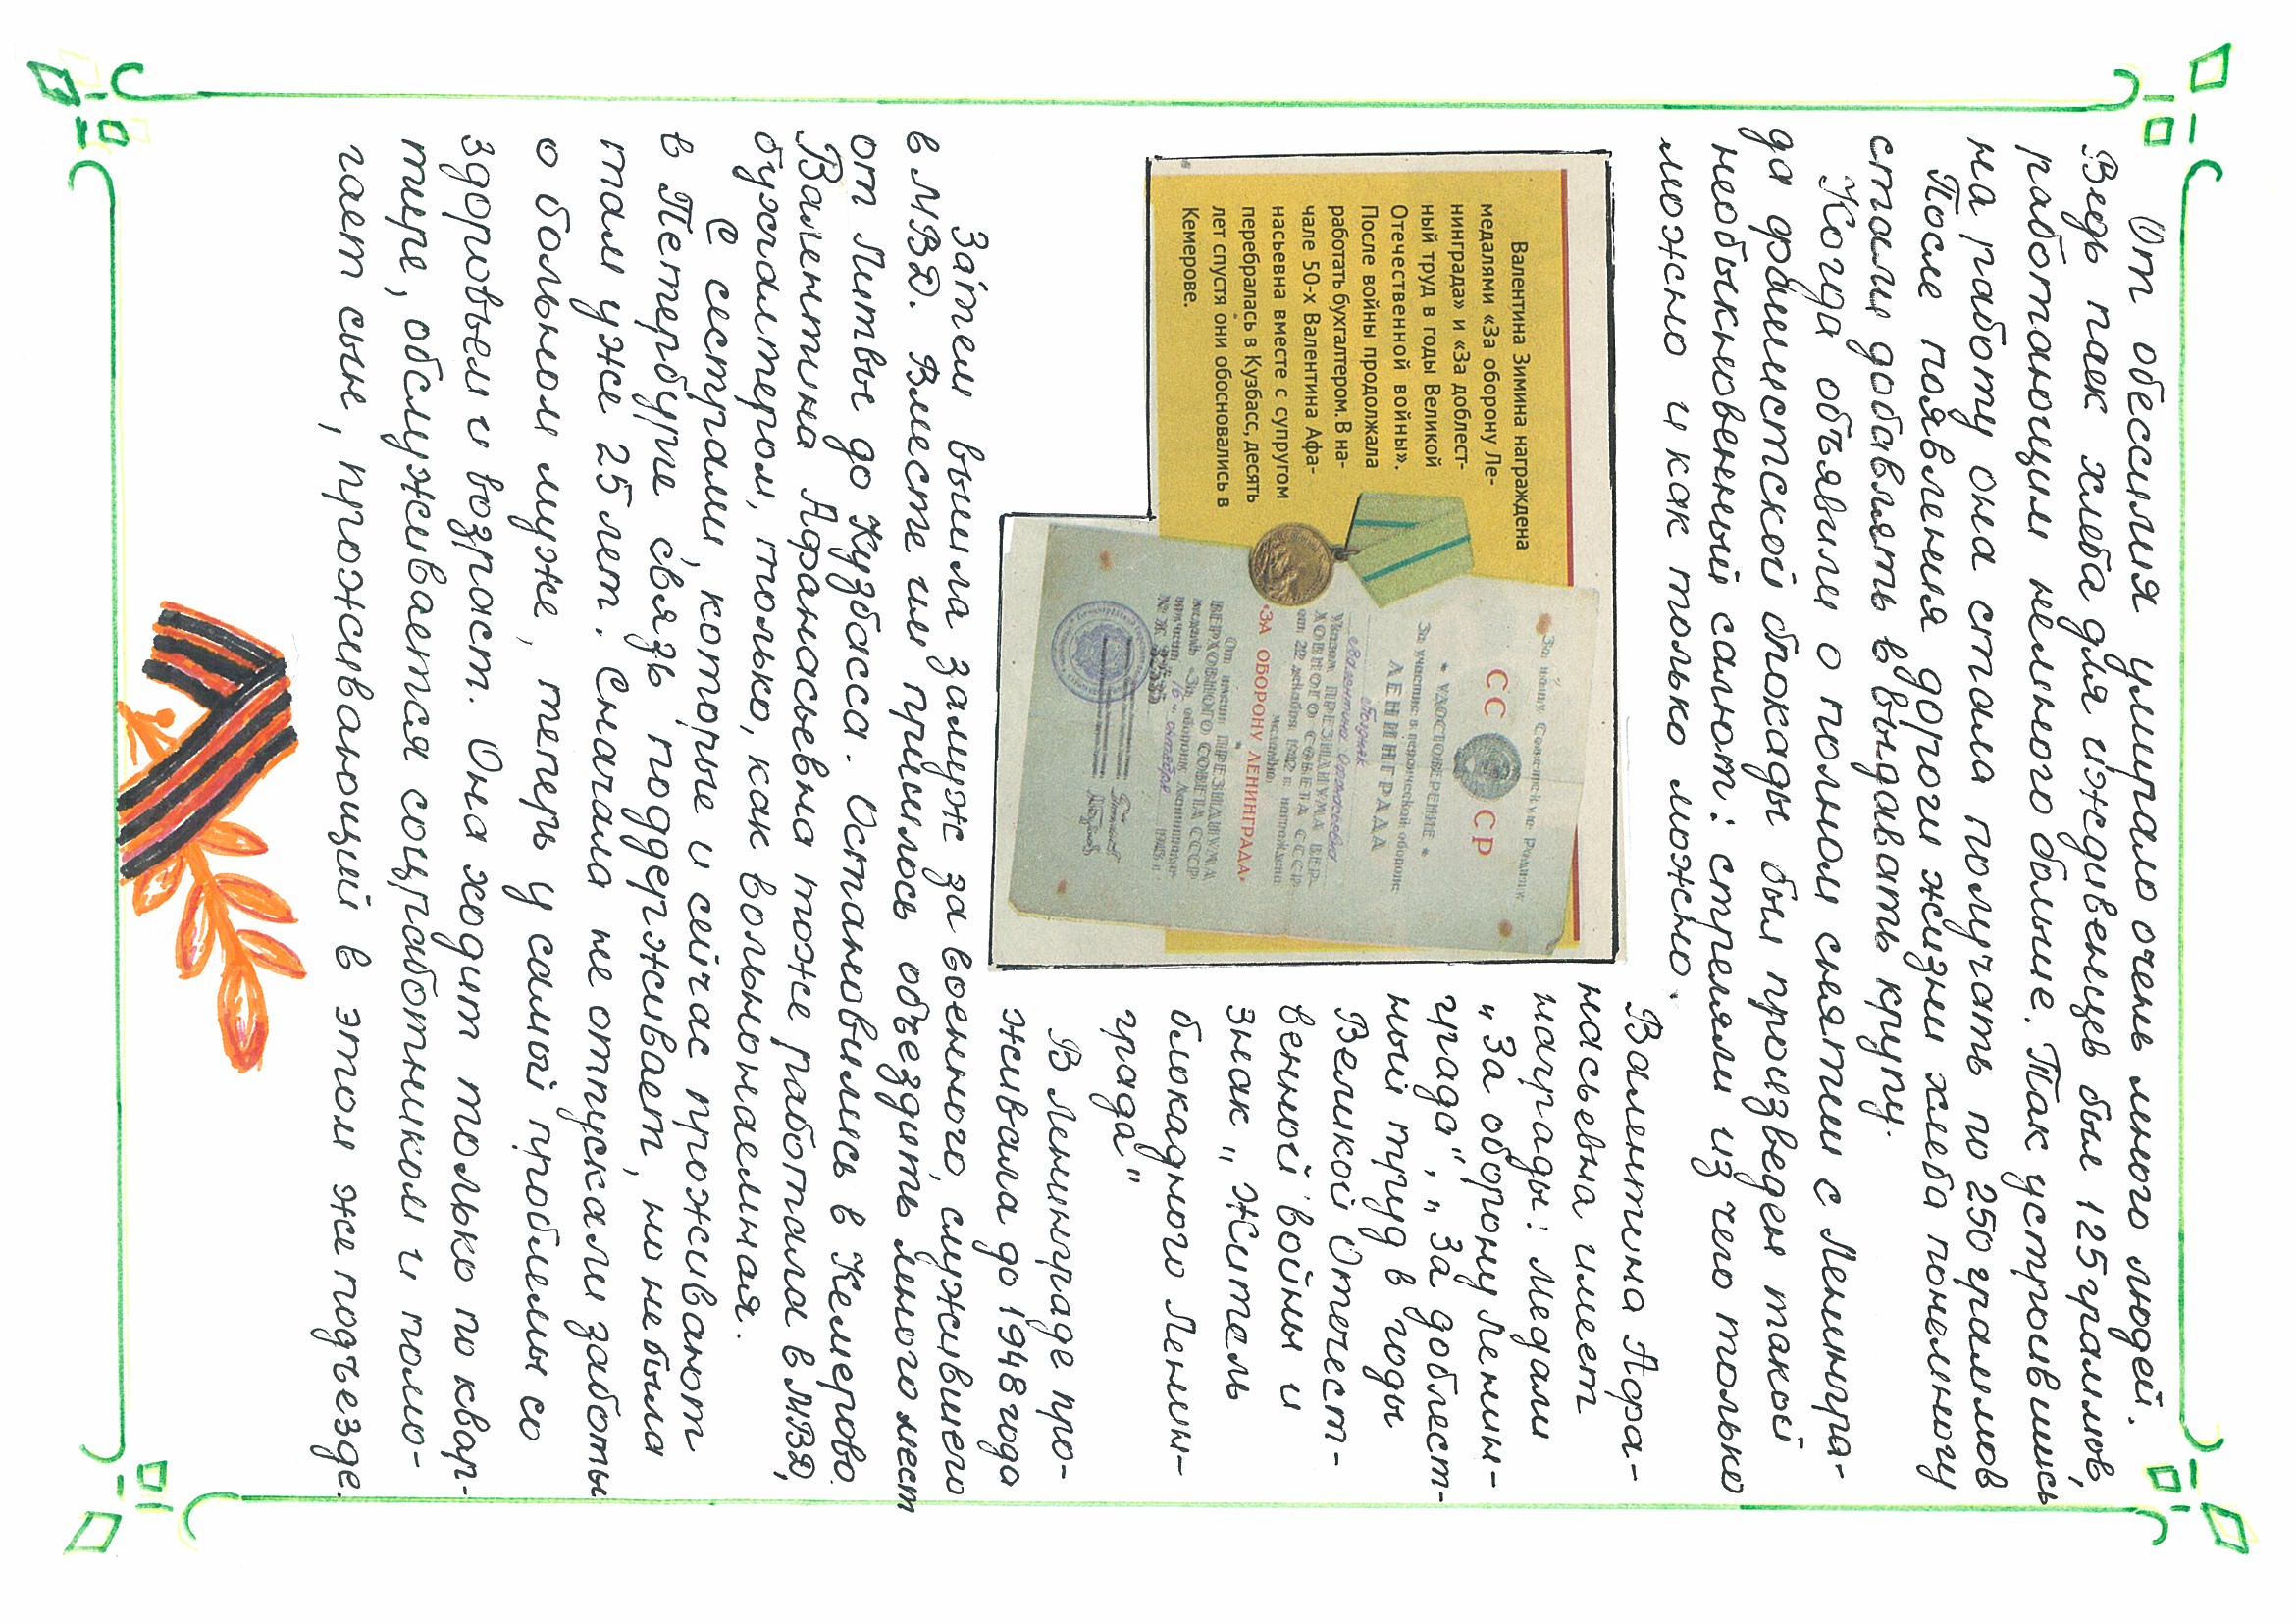 От обессилия умирало очень много людей.
Ведь паек хлеба для иждивенцев был 125 граммов,
работающим немного больше. Так устроившись
на работу она стала получать по 250 граммов
После появления дороги жизни хлеба понемногу
стали добавлять и выдавать крупу.
Когда объявили о полном снятии с Ленингра-
да фашистской блокады был произведен такой
необыкновенный салют: стреляли из чего только
можно и как только можно.
Валентина Зимина награждена
медалями «За оборону Ле-
нинграда» и «За доблест-
ный труд в годы Великой
Отечественной войны».
После войны продолжала
работать бухгалтером. В на-
чале 50-х Валентина Афа-
насьевна вместе с супругом
перебралась в Кузбасс, десять
лет спустя они обосновались в
Кемерове.
За нашу Советскую Родину
СС СР
УДОСТОВЕРЕНИЕ
За участие в героической обороне
ЛЕНИНГРАДА
Валентина Афанасьевна
Указом ПРЕЗИДИУМА ВЕР-
ХОВНОГО СОВЕТА СССР
от 22 декабря 1942 г. награждена
медалью
«ЗА ОБОРОНУ ЛЕНИНГРАДА»
От имени ПРЕЗИДИУМА
ВЕРХОВНОГО СОВЕТА СССР
медаль «За оборону Ленинграда»
вручена 16 октября 1943 г.
Валентина Афа-
насьевна имеет
награды: медали
„За оборону Ленин-
града", „За доблест-
ный труд в годы
Великой Отечест-
венной войны и
знак „Житель
блокадного Ленин-
града"
В Ленинграде про-
живала до 1948 года
Затем вышла замуж за военного, служившего
в МВД. Вместе им пришлось объездить много мест
от Литвы до Кузбасса. Остановились в Кемерово.
Валентина Афанасьевна тоже работала в МВД,
бухгалтером, только, как вольнонаемная.
С сестрами, которые и сейчас проживают
в Петербурге связь поддерживает, но не была
там уже 25 лет. Сначала не отпускали заботы
о больном муже, теперь у самой проблемы со
здоровьем и возраст. Она ходит только по квар-
тире, обслуживается соцработником и помо-
гает сын, проживающий в этом же подъезде.